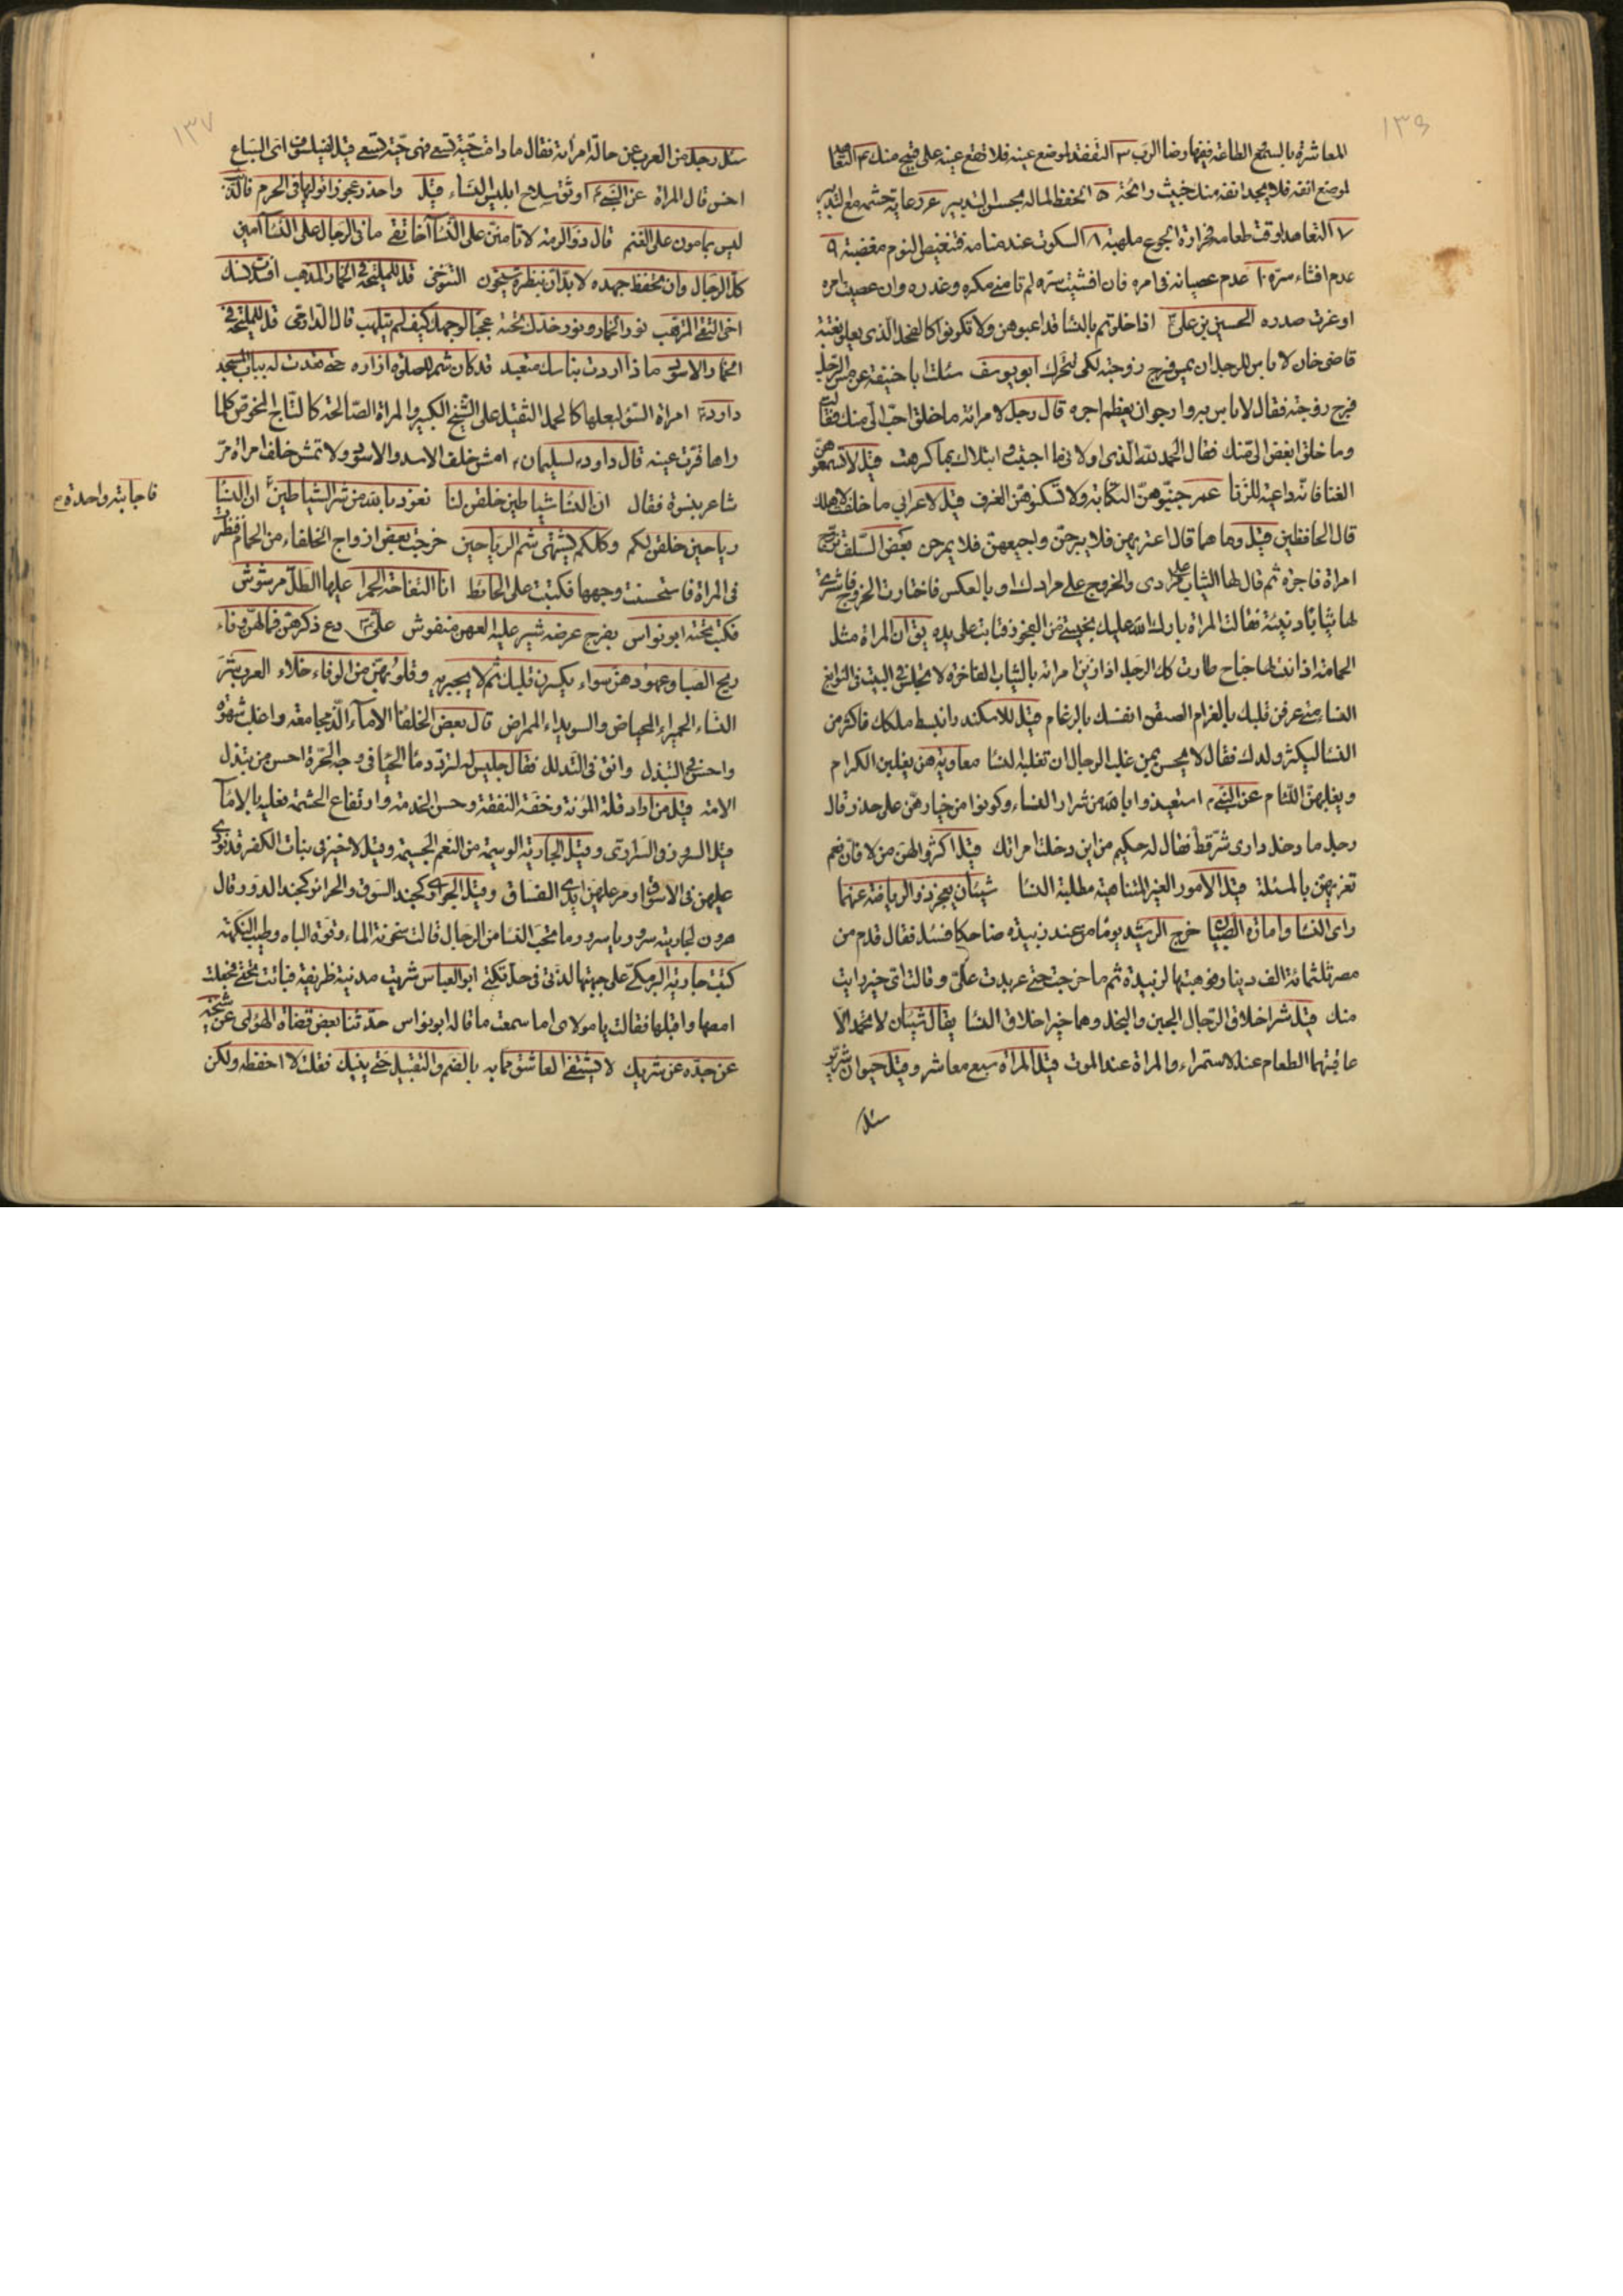 ١٣٦
المعاشرة بالسمع الطاعة ففيها رضا الرب ٣ التفقد لموضع عينه فلا تقع عينه على قبيح منك ٤ التفقد
لموضع انفه فلا يجد انفه منك خبيث رائحة ٥ الحفظ لماله بحسن التدبير ٦ رعاية حشمه مع التدبير
٧ التعاهد لوقت طعامه فحرارة الجوع ملهبة ٨ السكوت عند منامه فتنغيص النوم مغضبة ٩
عدم افشاء سره ١٠ عدم عصيانه في امره فان افشيت سره لم تامني مكره وغدره وان عصيت امره
اوغرت صدره الحسين بن علي اذا خلوتم بالنسا فداعبوهن ولا تكونوا كالفحل الذي يعلو بغتة
قاضي خان لا باس للرجل ان يمس فرج زوجته لكي تتحرك ابو يوسف سئلت ابا حنيفة عن مس الرجل
فرج زوجته فقال لا باس به وارجو ان يعظم اجره قال رجل لامراته ما خلق احب الي منك فقالت
وما خلق ابغض الي منك فقال الحمد لله الذي اولاني ما احب وابتلاك بما كرهت قيل لا تسمعوهن
الغنا فانه داعية للزنا عمر جنبوهن الكتابة ولا تسكنوهن الغرف قيل لاعرابي ما خلفت لاهلك
قال الحافظين قيل وما هما قال اعريهن فلا يبرحن واجيعهن فلا يمرحن بعض السلف تزوج
امراة فاجرة ثم قال لها الثياب على مرادي والخروج على مرادك او بالعكس فاختارت الخروج فاشترى
لها ثيابا دنيئة فقالت المراة بارك الله عليك بخستي من العجوز فتابت على يده يق ان المراة مثل
الحمامة اذا نبت لها جناح طارت كك الرجل اذا زين امراته بالثياب الفاخرة لا تجلس في البيت في النوابغ
النساء متى عرفن قلبك بالغرام الصقن انفك بالرغام قيل للاسكندر انبسط ملكك فاكثر من
النسا ليكثر ولدك فقال لا يحسن بمن غلب الرجال ان تغلبه النسا معاوية هن يغلبن الكرام
ويغلبهن اللئام عن النبي استعيذوا بالله من شرار النساء وكونوا من خيارهن على حذر وقال
رجل ما دخل داري شر قط فقال له حكيم من اين دخلت امراتك قيل اكثروا لهن من لا فان نعم
تغريهن بالمسئلة قيل الامور الغير المتناهية مطلبة النسا شيئان يعجز ذو الرياضة عنهما
راى النسا وامارة الصبيان خرج الرشيد يوما من عند زبيدة ضاحكا فسئل فقال قدم من
مصر ثلثمائة الف دينار فوهبتها لزبيدة ثم ما خرجت حتى عربدت علي وقالت اي خير رايت
منك قيل شر اخلاق الرجال الجبن والبخل وهما خير اخلاق النسا يقال شيئان لا تحمد الا
عاقبتهما الطعام عند الاستمراء والمراة عند الموت قيل المراة سبع معاشر وقيل حيوان شرير
سئل
١٣٧
سئل رجل من العرب عن حالة امراته فقال ما دامت حية تسعى فهي حية تسعى قيل لفيلسوف اي السباع
احسن قال المراة عن النبي اوثق سلاح ابليس النساء قيل واحذر عجوزا تولها في الحرم فالذئب
ليس بمامون على الغنم قال ذو الرمة لا تامنن على النسا اخا ثقة ما في الرجال على النسا امين
كل الرجال وان تحفظ جهده لا بد ان بنظرة سيخون التنوخي قل للمليحة في الخمار المذهب افسدت نسك
اخي التقى المترهب نور الخمار ونور خدك تحته عجبا لوجهك كيف لم يتلهب قال الدارمي قل للمليحة في
الخمار الاسود ماذا اردت بناسك متعبد قد كان شمر للصلوة ازاره حتى قعدت له بباب المسجد
داود امراة السوء لبعلها كالحمل الثقيل على الشيخ الكبير والمراة الصالحة كالتاج المخوص كلما
راها قرت عينه قال داود لسليمان امش خلف الاسد والاسود ولا تمش خلف امراة مر
شاعر بنسوة فقال ان النسا شياطين خلقن لنا نعوذ بالله من شر الشياطين ان النسا
فاجابته واحدة
رياحين خلقن لكم وكلكم يشتهي شم الرياحين خرجت بعض ازواج الخلفاء من الحمام فنظرت
في المراة فاستحسنت وجهها فكتبت على الحائط انا التفاحة الحمرا عليها الطل مرشوش
فكتب تحته ابو نواس بفرج عرضه شبر عليه العهن منفوش علي دع ذكرهن فما لهن وفاء
ريح الصبا وعهودهن سواء يكسرن قلبك ثم لا يجبرنه وقلوبهن من الوفاء خلاء العرب
النساء الحميراء المحياض والسويداء الممراض قال بعض الخلفا الاماء الذ مجامعة واغلب شهوة
واحسن في التبذل وانق في التدلل فقال جليس له لتردد ماء الحيا في وجه الحرة احسن من تبذل
الامة قيل من اراد قلة المؤنة وخفة النفقة وحسن الخدمة وارتفاع الحشمة فعليه بالاماء
قيل السرور في السراري وقيل الجارية الوسيمة من النعم الجسيمة وقيل لا خير في بنات الكفر قد نودي
عليهن في الاسواق ومر عليهن ايدي الفساق وقيل الجواري كخبز السوق والحرائر كخبز الدور وقال
هرون لجارية سرور يا سرور ما تحب النسا من الرجال قالت سخونة الماء وقوة الباه وطيب النكهة
كتبت جارية البرمكي على جبهتها لذتي في حل تكتي ابو العباس شريت مدنية ظريفة فباتت تحتي فجعلت
امصها واقبلها فقالت يا مولاي اما سمعت ما قاله ابو نواس حدثنا بعض قضاة الهوى عن شيخه
عن جده عن شريك لا يشتفي العاشق مما به بالضم والتقبيل حتى ينيك فقلت لا احفظه ولكن